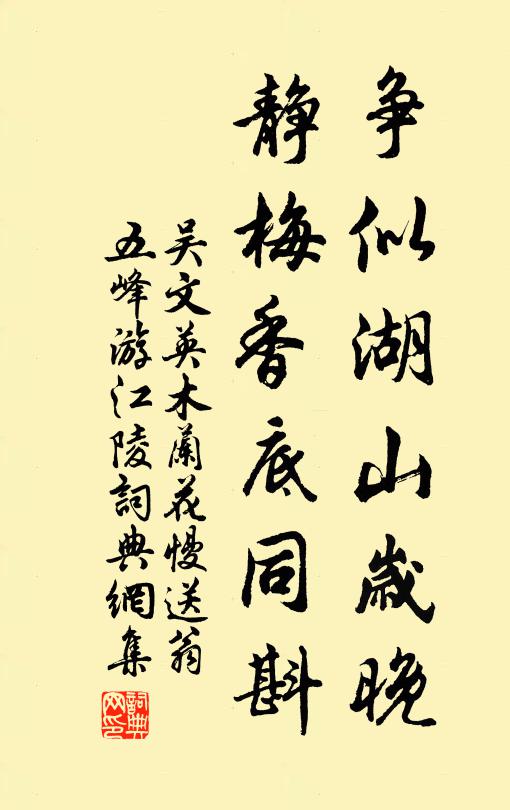 争似湖山岁晚
静梅香底同斟
吴文英木兰花慢送翁
五峰游江陵詞典網集
詞典网印